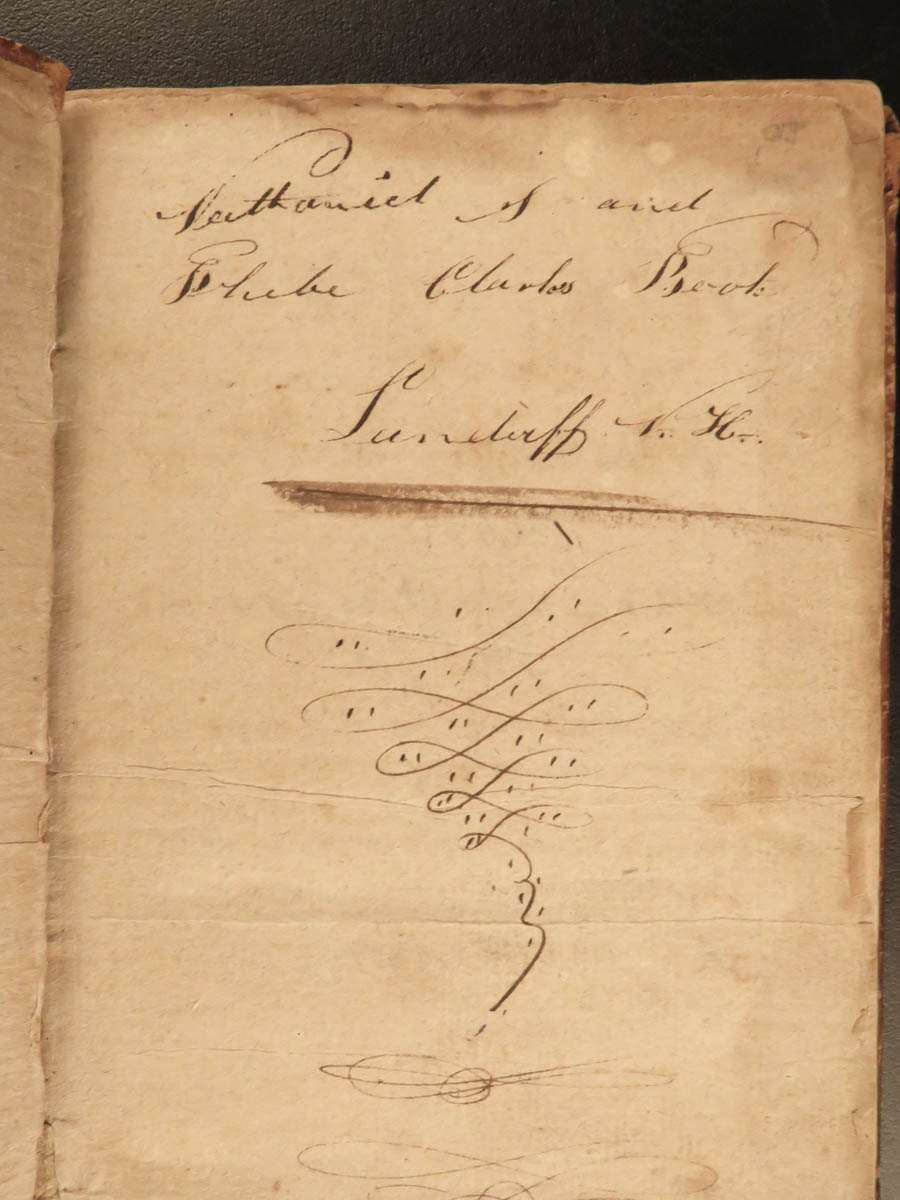 Nathaniel S and
Phebe Clarks Book
Landaff N. H.